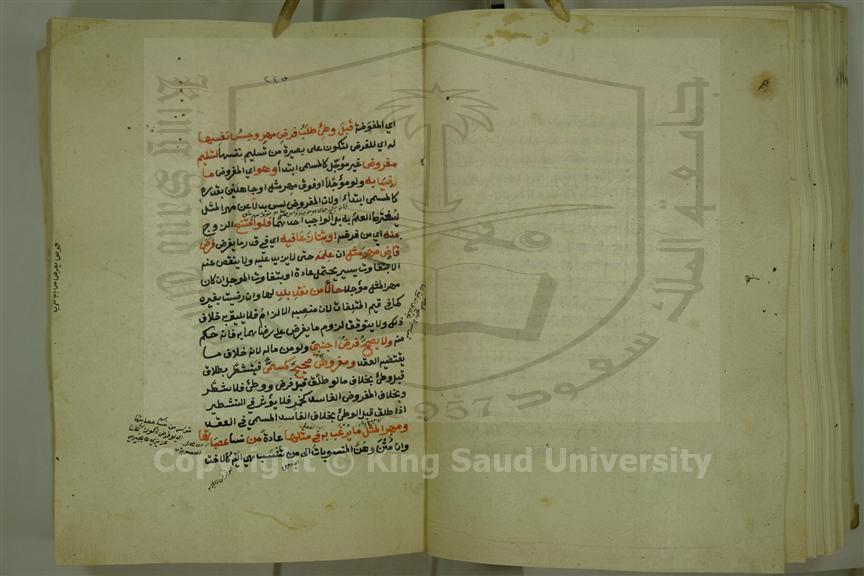 اي المفوضة قبل وطئ طلب فرض مهر وحبس نفسها
له اي للفرض لتكون على بصيرة من تسليم نفسها ولتسليم
مفروض غير مؤجل كالمسمى ابتداء وهو اي المفروض ما
رضيا به ولو مؤجلا او فوق مهر مثل او جاهلين بقدره
كالمسمى ابتداء ولان المفروض ليس بدلا عن مهر المثل
ليشترط العلم به بل الواجب احدهما فلو امتنع الزوج
منه اي من فرضه او تنازعا فيه اي في قدر ما يفرض فرض
قاض مهر مثل ان علمه حتى لا يزيد عليه ولا ينقص عنه
الا بتفاوت يسير يحتمل عادة او بتفاوت المؤجل ان كان
مهر المثل مؤجلا حالا من نقد بلد لها وان رضيت بغيره
كما في قيم المتلفات لان منصبه الالزام فلا يليق به خلاف
ذلك ولا يتوقف لزوم ما يفرض على رضاهما به فانه حكم
منه ولا يصح فرض اجنبي ولو من ماله لانه خلاف ما
يقتضيه العقد ومفروض صحيح كمسمى فيتشطر بطلاق
قبل وطئ بخلاف ما لو طلق قبل فرض ووطئ فلا تشطر
وبخلاف المفروض الفاسد كخمر فلا يؤثر في التشطير
اذا طلق قبل الوطئ بخلاف الفاسد المسمى في العقد
ومهر المثل ما يرغب به في مثلها عادة من نساء عصباتها
وان متن وهن المنسوبات الى من تنسب هي اليه كالاخت
جامعة الملك سعود
King Saud University
1957
Copyright © King Saud University